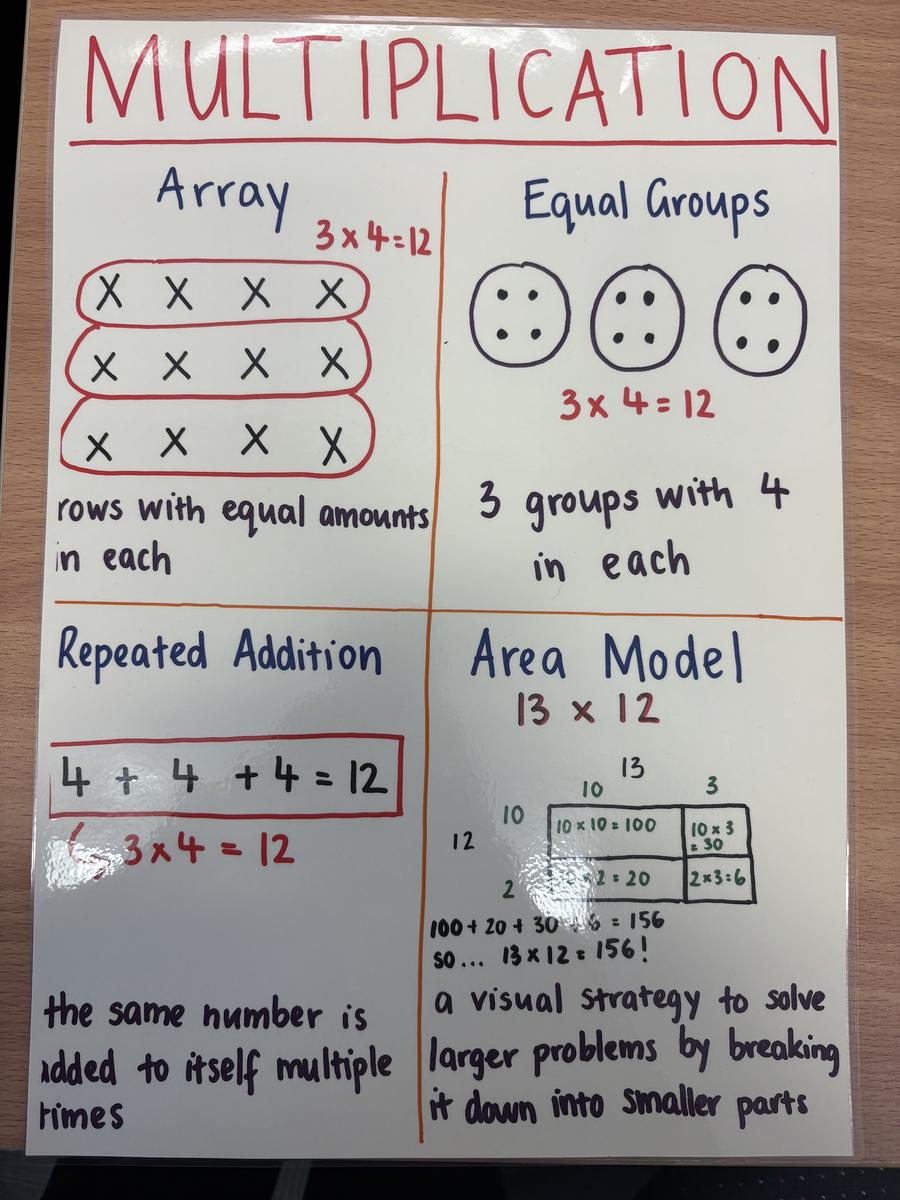 MULTIPLICATION
Array
3 x 4 = 12
X X X X
X X X X
X X X X
rows with equal amounts
in each
Equal Groups
3 x 4 = 12
3 groups with 4
in each
Repeated Addition
4 + 4 + 4 = 12
3 x 4 = 12
the same number is
added to itself multiple
times
Area Model
13 x 12
13
10 3
10
10 x 10 = 100
10 x 3
= 30
12
2
x 2 = 20
2 x 3 = 6
100 + 20 + 30 + 6 = 156
so... 13 x 12 = 156!
a visual strategy to solve
larger problems by breaking
it down into smaller parts